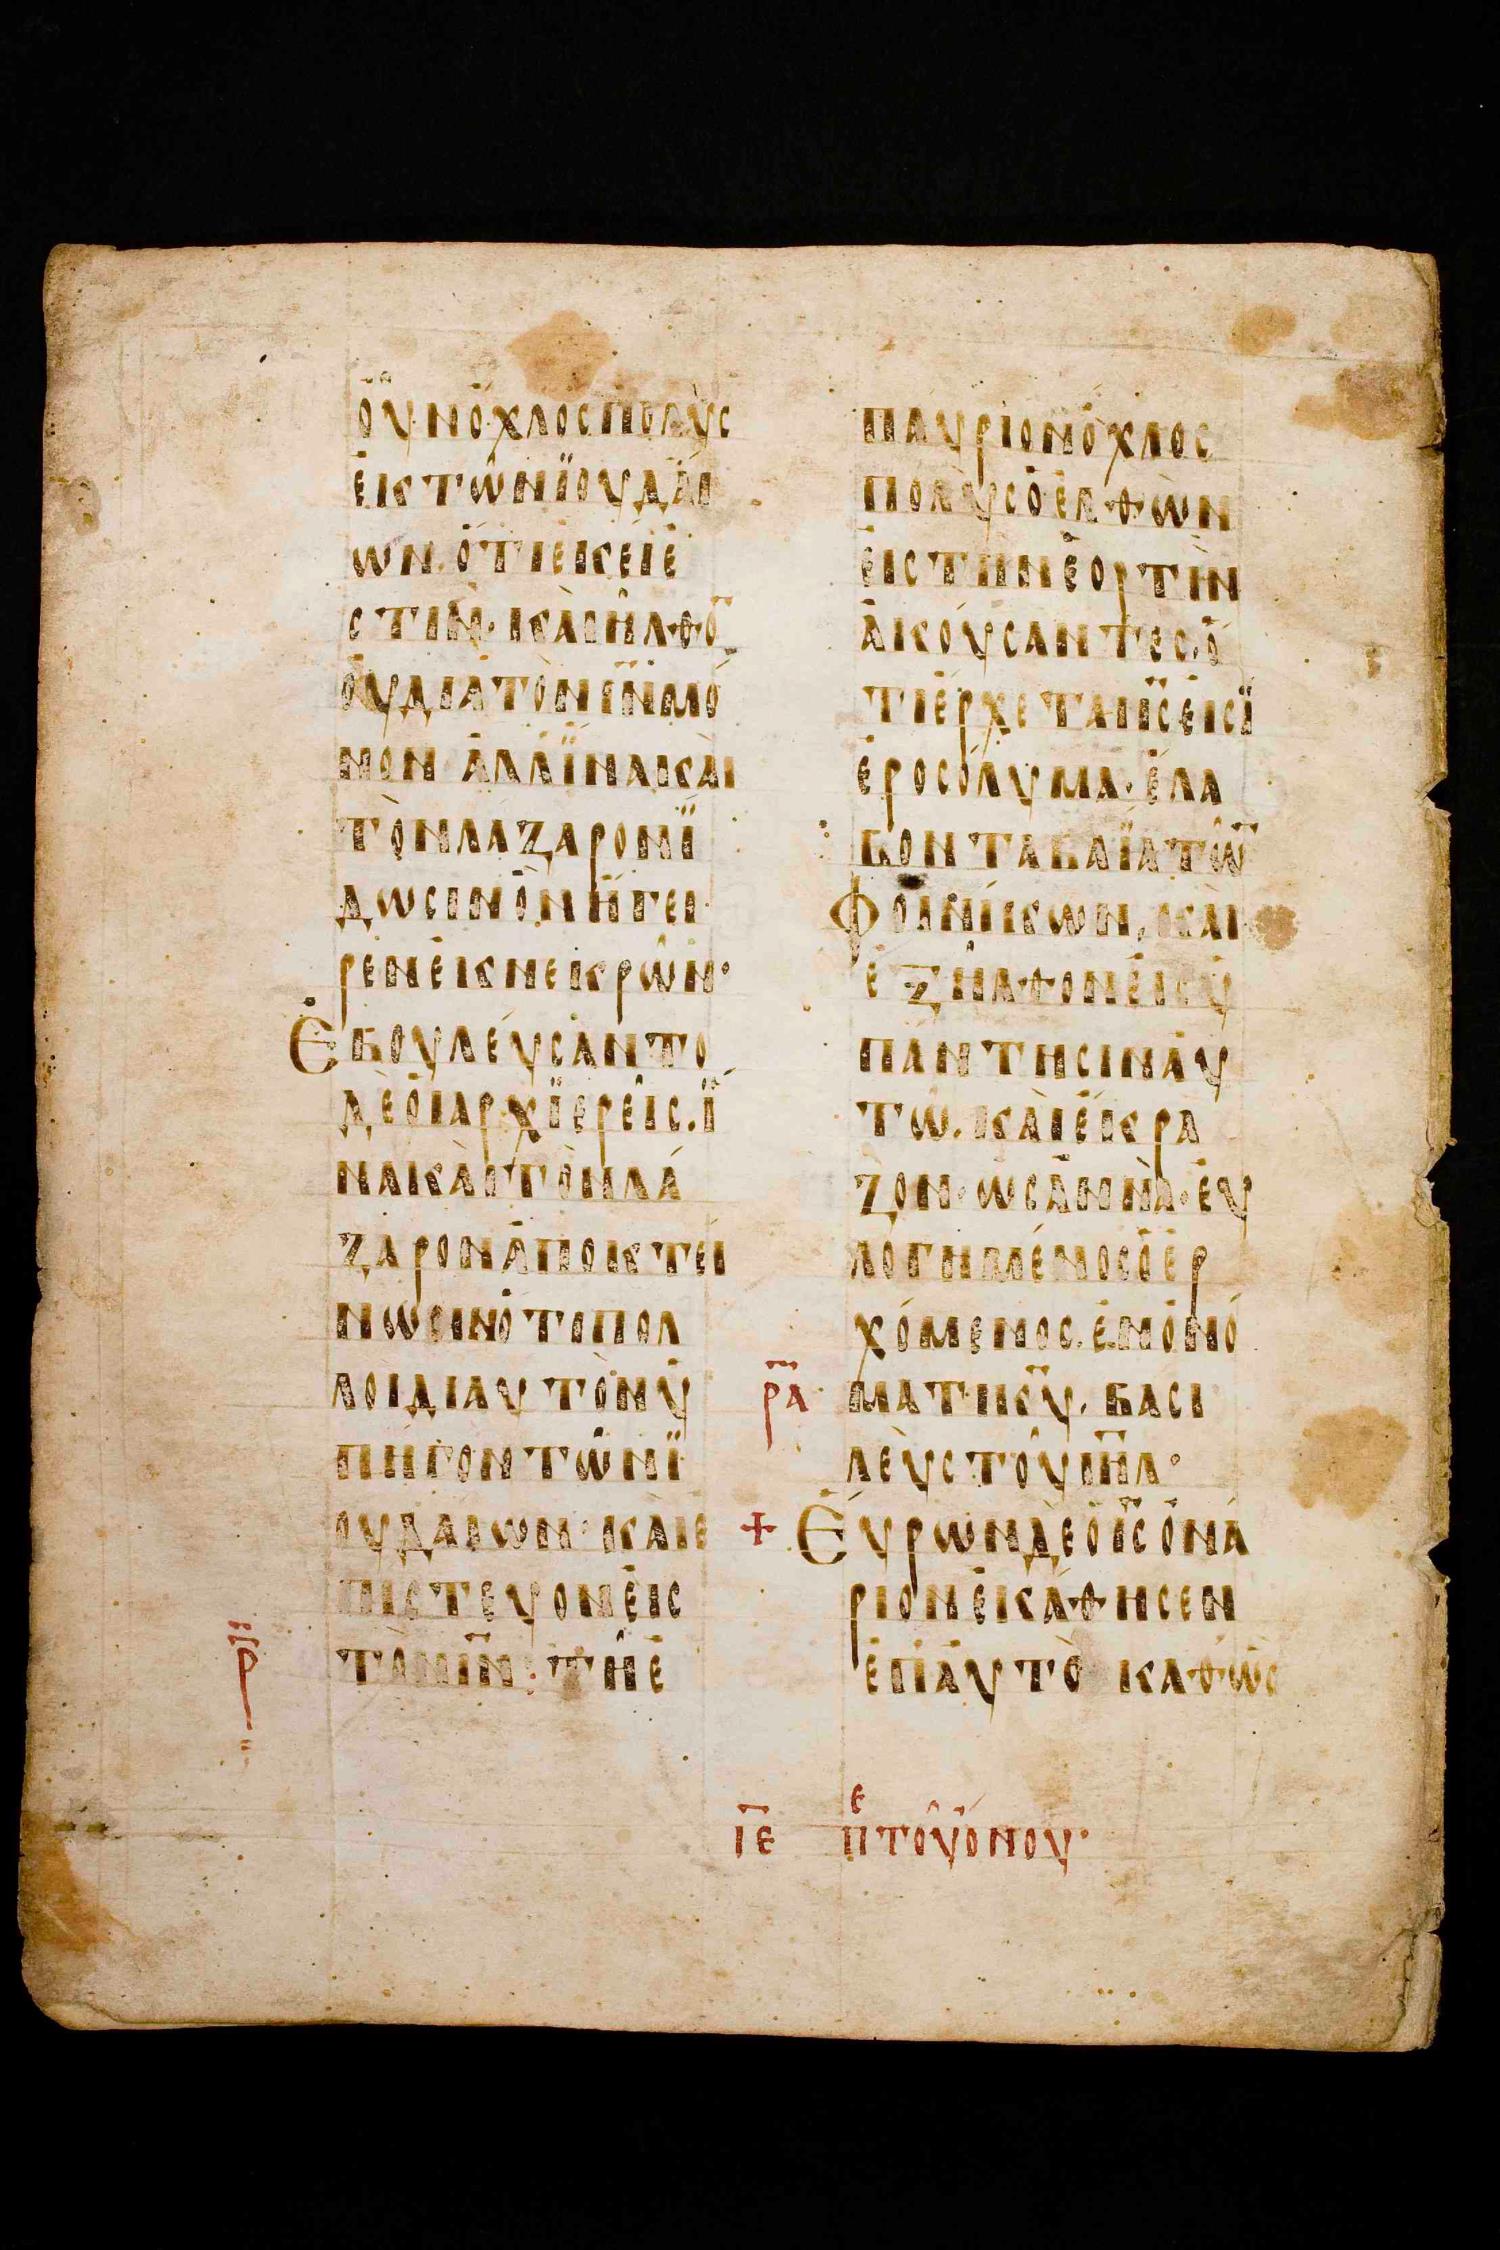 ὀῦν ὄχλος πολὺς
ἐκ τῶν ϊουδαί
ων. ὅτι ἐκεῖ ἐ
στιν· καὶ ἦλθο̅
ὀυ διὰ τὸν ι̅ν̅ μό
νον ἀλλ ϊνα καὶ
τὸν λάζαρον ϊ
δωσιν ὃν ἤγει
ρεν ἐκ νεκρῶν·
Ἐβουλέυσαντο
δὲ ὁι ἀρχϊερεῖς. ϊ
να καὶ τὸν λά
ζαρον ἀποκτεί
νωσιν ὅτι πολ
λοι δι ἀυτὸν ὑ
πῆγον τῶν ϊ
ουδαίων· καὶ ἐ
πίστευον ἐις
τὸν ι̅ν̅: τῆ ἐ
ρ̅
παύριον ὄχλος
πολὺς ὁ ἐλθὼν
ἐις τὴν ἑορτὴν
ἀκούσαντες. ὅ
τι ἔρχεται ι̅ς̅ ἐις ϊ
εροσόλυμα· ἔλα
βον τὰ βαΐα τῶ̅
Φοινίκων, καὶ
ἐξῆλθον ἐις ὑ
πάντησιν ἀυ
τῶ. καὶ ἔκρα
ζον· ὡσαννὰ· ἐυ
λογημένος ὁ ἐρ
χόμενος. ἐν ὀνό
ρ̅α̅
ματι κ̅υ̅. βασι
λεὺς τοῦ ι̅η̅λ̅·
+ Ἑυρὼν δὲ ὁ ι̅ς̅ ὀνά
ριον ἐκάθησεν
ἐπ ἀυτὸ καθώς
ι̅ε̅ πε τοῦ ὄνου·